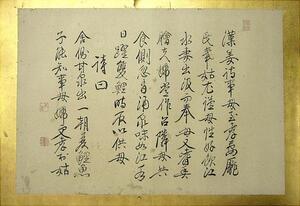 漢姜詩事母至孝妻龐
氏奉姑尤謹母性好飲江
水妻出汲而奉母又嗜魚
膾夫婦常作召隣母共
食側忽有湧泉味如江水
日躍雙鯉時取以供母
詩曰
舍側甘泉出一朝雙鯉魚
子能知事母婦更孝於姑